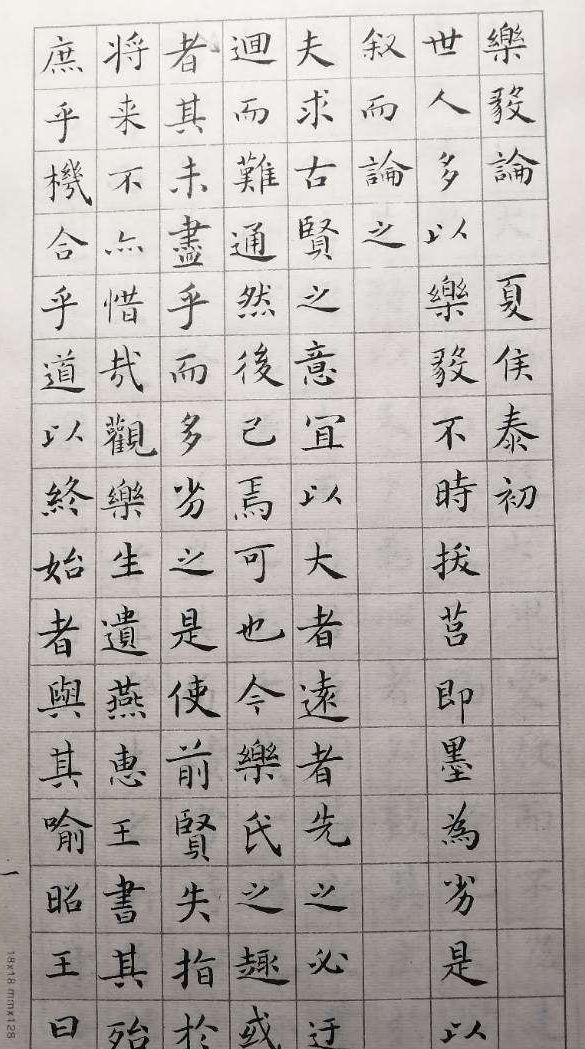 樂毅論 夏侯泰初
世人多以樂毅不時拔莒即墨為劣是以
叙而論之
夫求古賢之意宜以大者遠者先之必迂
迴而難通然後已焉可也今樂氏之趣或
者其未盡乎而多劣之是使前賢失指於
将来不亦惜哉觀樂生遺燕惠王書其殆
庶乎機合乎道以終始者與其喻昭王曰
一
18x18mmx128